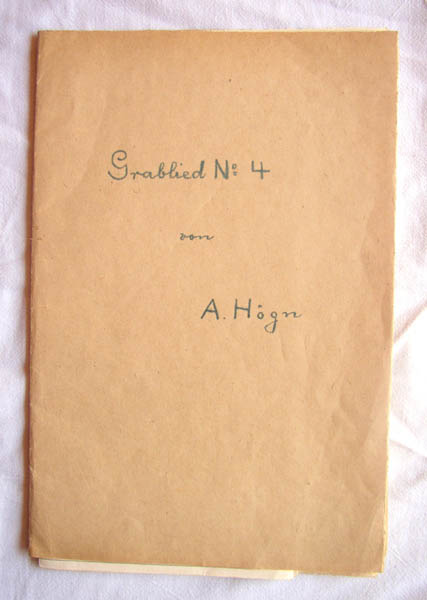 Grablied No: 4
von
A. Högn